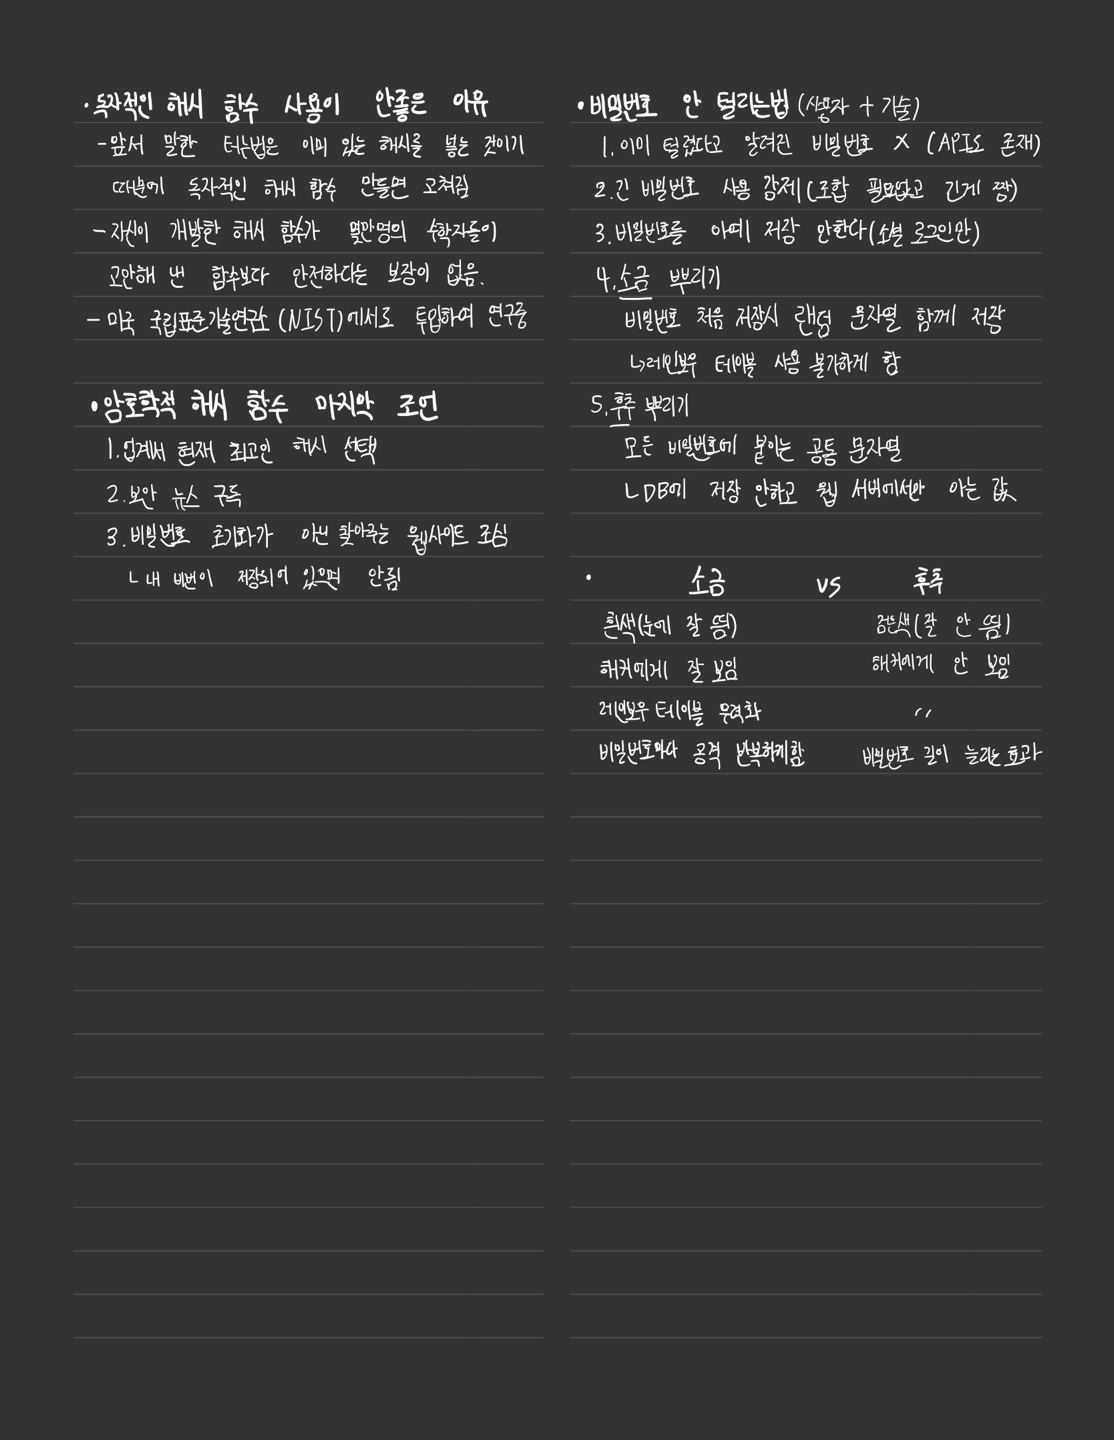 · 독자적인 해시 함수 사용이 안좋은 이유
- 앞서 말한 터는법은 이미 있는 해시를 넣는 것이기
때문에 독자적인 해시 함수 만들면 고쳐짐
- 자신이 개발한 해시 함수가 몇만명의 수학자들이
고안해 낸 함수보다 안전하다는 보장이 없음.
- 미국 국립표준기술연구소 (NIST)에서도 투입하여 연구중
· 암호학적 해시 함수 마지막 조언
1. 업계에서 현재 최고인 해시 선택
2. 보안 뉴스 구독
3. 비밀번호 초기화가 아닌 찾아주는 웹사이트 조심
ㄴ 내 비번이 저장되어 있으면 안됨
· 비밀번호 안 털리는법 (사용자 + 기술)
1. 이미 털렸다고 알려진 비밀번호 X (API도 존재)
2. 긴 비밀번호 사용 강제 (조합 필요없고 긴게 짱)
3. 비밀번호를 아예 저장 안한다 (소셜 로그인만)
4. 소금 뿌리기
비밀번호 처음 저장시 랜덤 문자열 함께 저장
↳ 레인보우 테이블 사용 불가하게 함
5. 후추 뿌리기
모든 비밀번호에 붙이는 공통 문자열
ㄴ DB에 저장 안하고 웹 서버에서만 아는 값
· 소금 vs 후추
흰색(눈에 잘 띔) 검은색(잘 안 띔)
해커에게 잘 보임 해커에게 안 보임
레인보우 테이블 무력화 〃
비밀번호마다 공격 반복하게함 비밀번호 길이 늘리는 효과